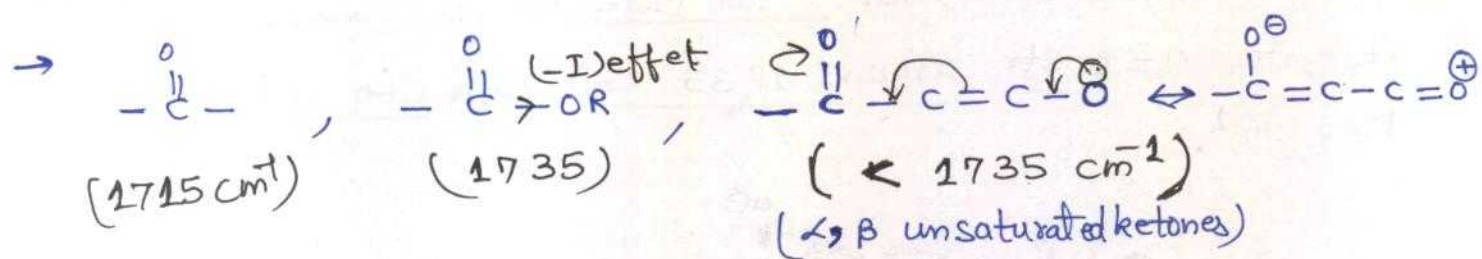 → -C(=O)- , -C(=O)→OR (-I) effet , -C(=O)-C=C-Ö ↔ -C(O⊖)=C-C=O⊕
(1715 cm⁻¹) (1735) (< 1735 cm⁻¹)
(α, β unsaturated ketones)